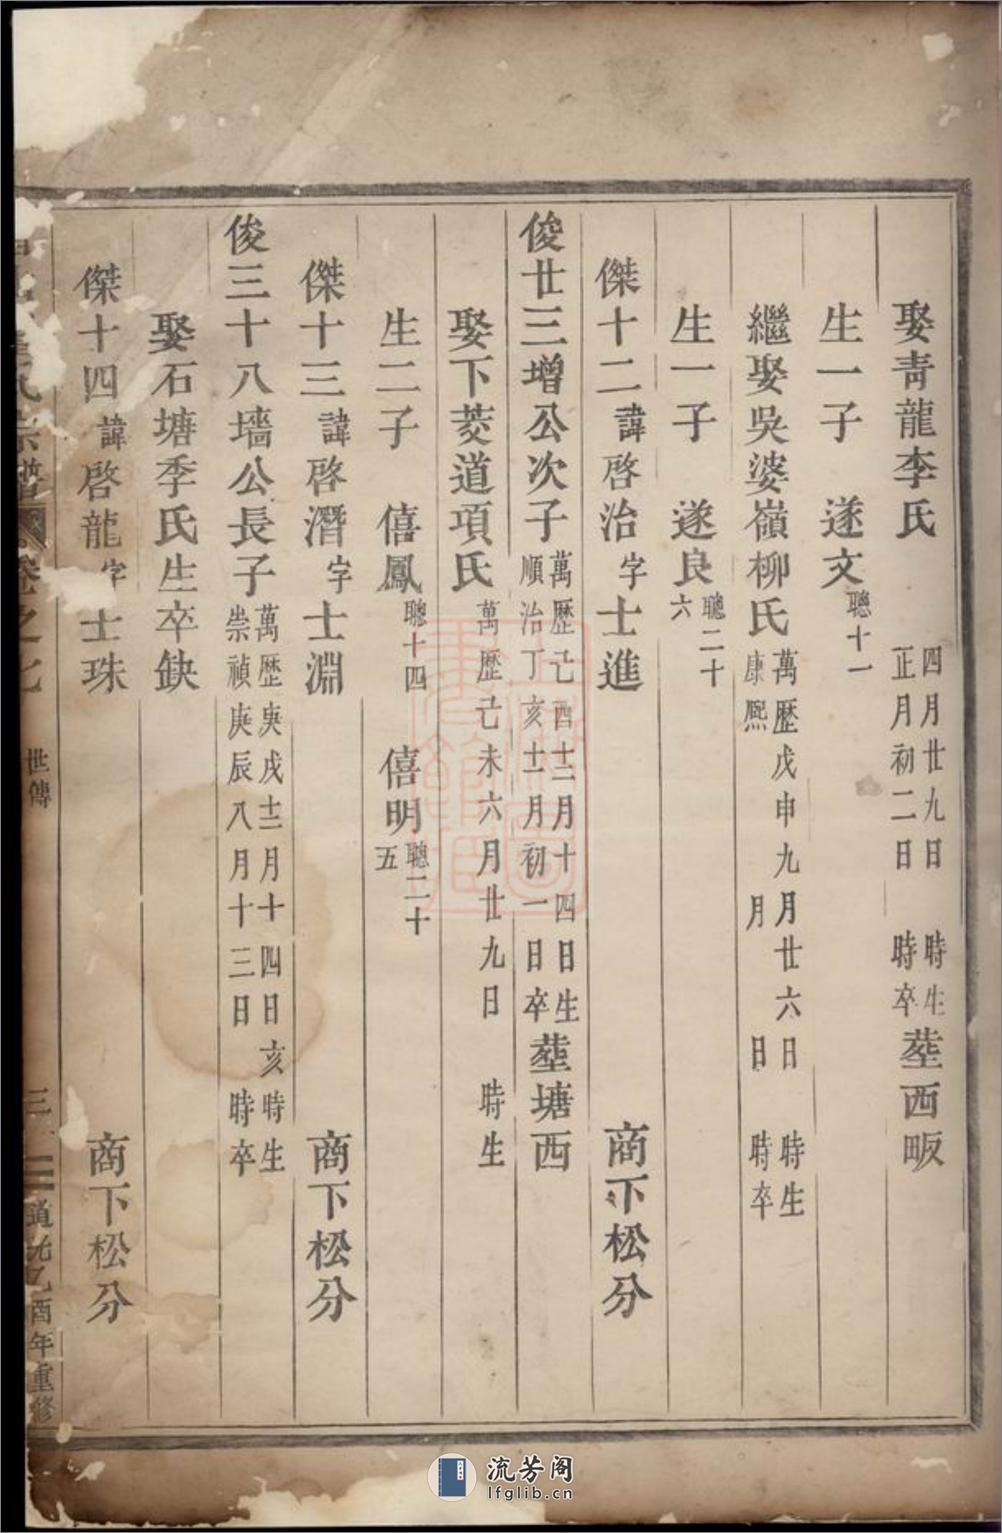 娶青龍李氏 四月廿九日 時生 正月初二日 時卒 塟西畈
生一子 遂文 聰十一
繼娶吳婆嶺柳氏 萬歷戊申九月廿六日 時生 康熙 月 日 時卒
生一子 遂良 聰二十六
傑十二 諱啓治 字士進 商下松分
俊廿三增公次子 萬歷己酉十二月十四日生 順治丁亥十一月初一日卒 塟塘西
娶下菱道項氏 萬歷己未六月廿九日 時生
生二子 僖鳳 聰十四 僖明 聰二十五
傑十三 諱啓潛 字士淵 商下松分
俊三十八墻公長子 萬歷庚戌十二月十四日亥時生 崇禎庚辰八月十三日 時卒
娶石塘季氏生卒缺
傑十四 諱啓龍 字士珠 商下松分
氏宗譜 卷之七 世傳 三 道光乙酉年重修
流芳阁
lfglib.cn